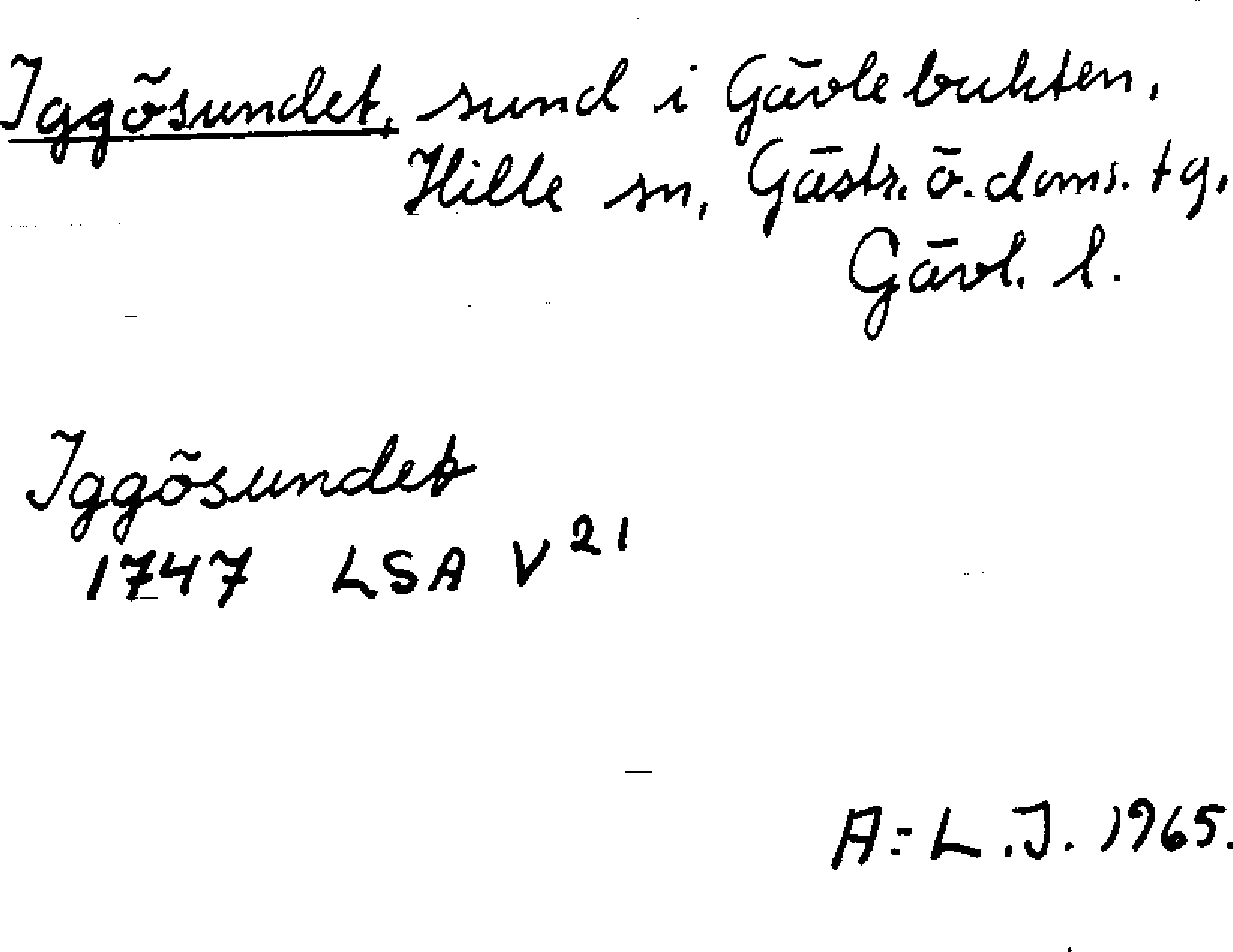 Iggösundet, sund i Gävlebukten,
Hille sn, Gästr. ö. doms. tg,
Gävl. l.
Iggösundet
1747 LSA V²¹
A:L.J. 1965.